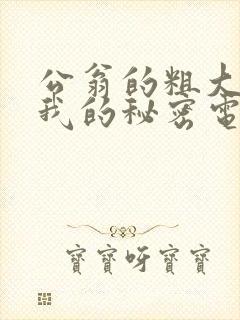 公翁的粗大
我的秘密電
寶寶呀寶寶